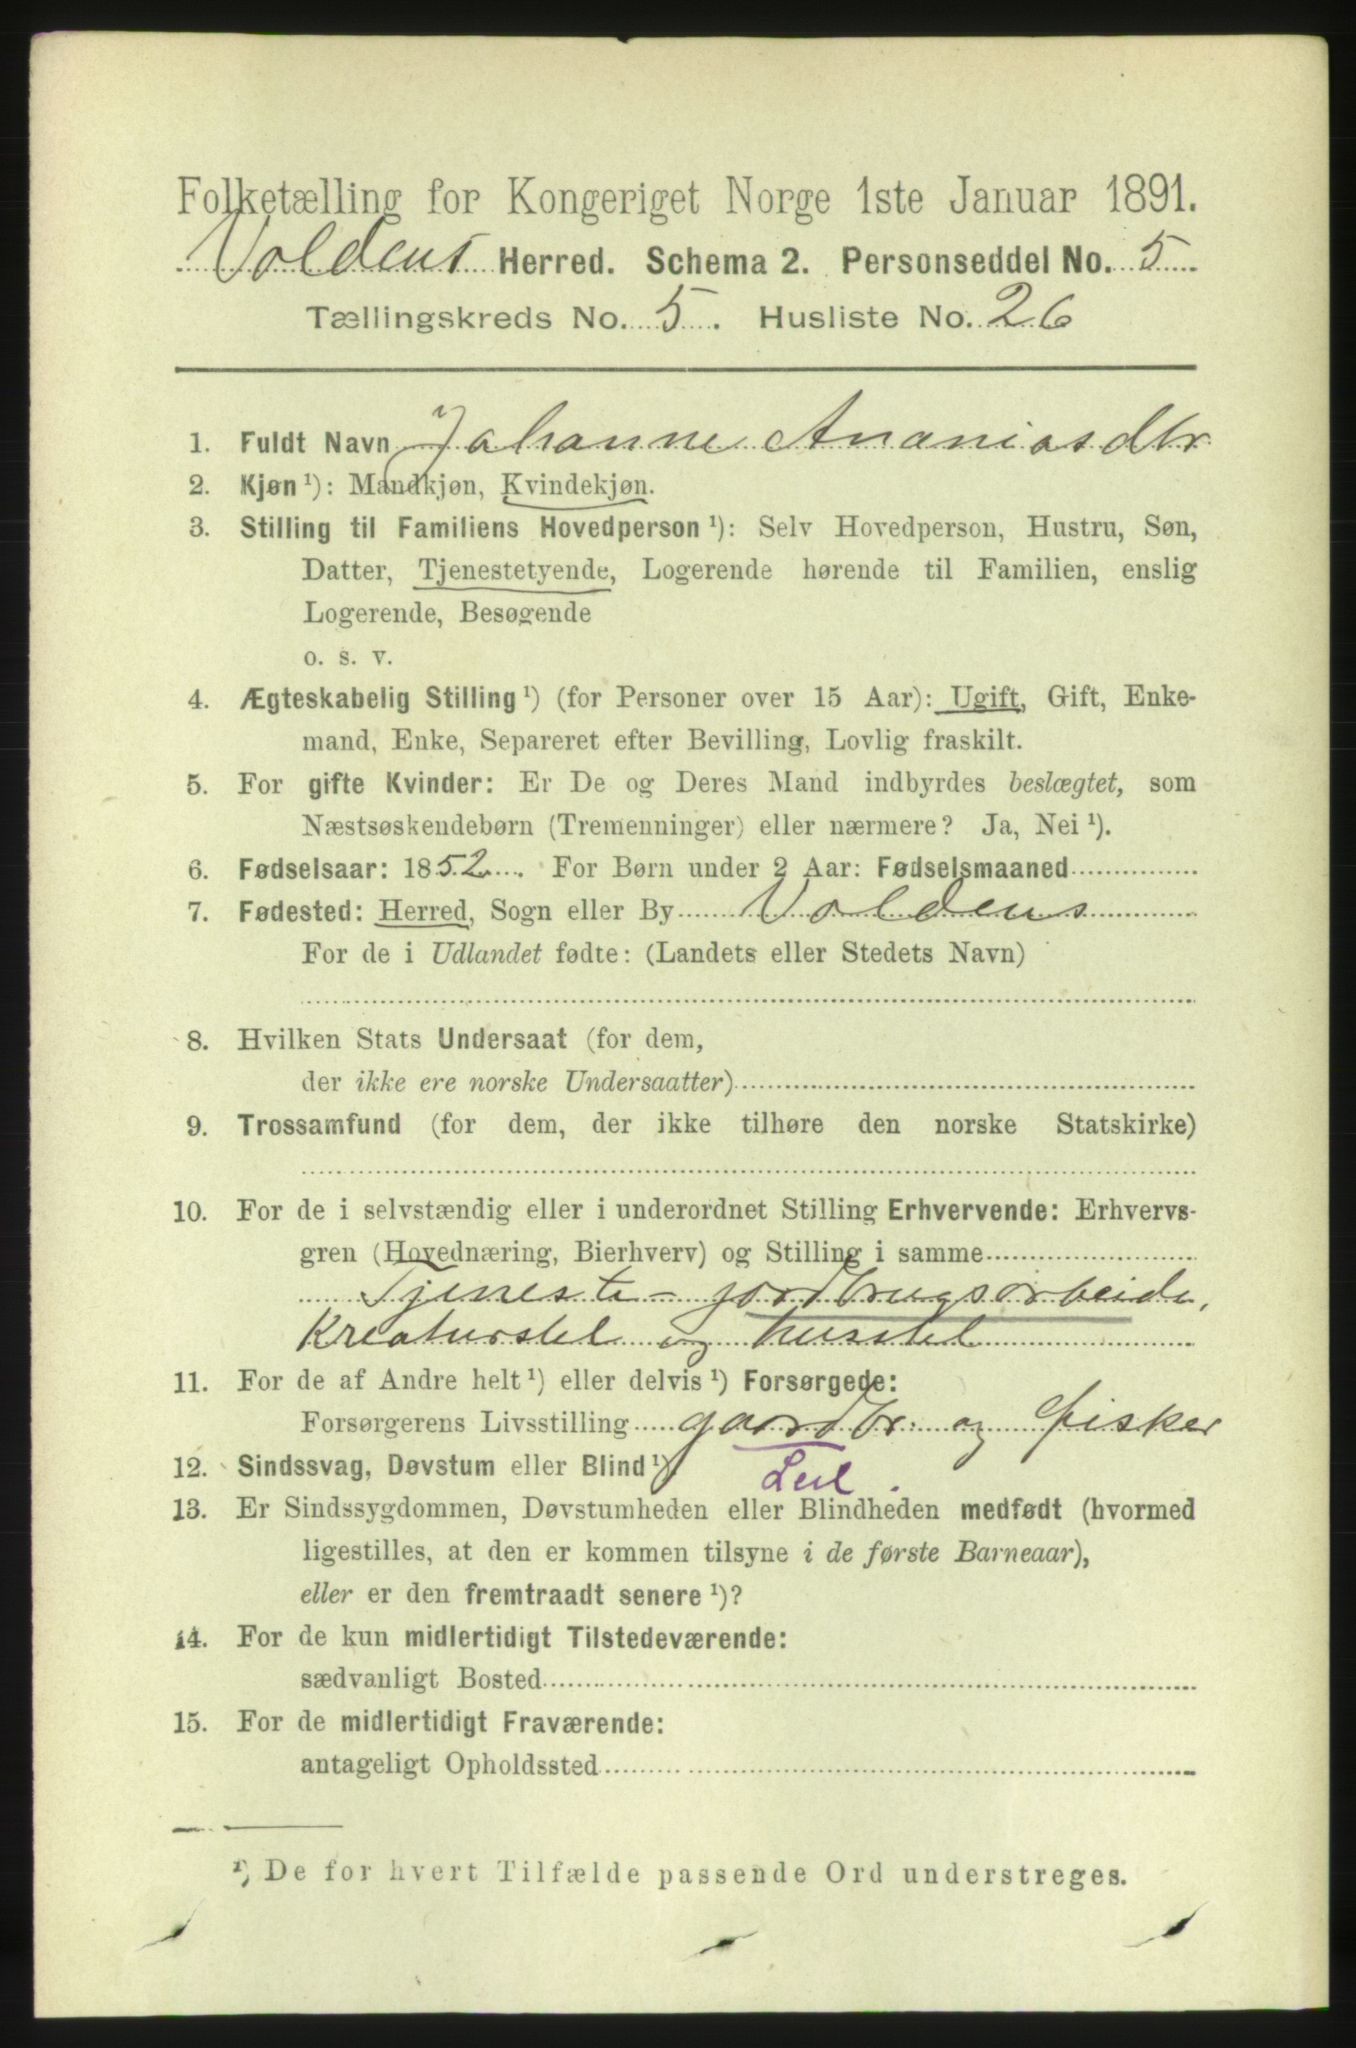 Folketælling for Kongeriget Norge 1ste Januar 1891.
Voldens Herred. Schema 2. Personseddel No. 5
Tællingskreds No. 5. Husliste No. 26
1. Fuldt Navn Johanne Ananiasdtr
2. Kjøn ¹): Mandkjøn, Kvindekjøn.
3. Stilling til Familiens Hovedperson ¹): Selv Hovedperson, Hustru, Søn,
Datter, Tjenestetyende, Logerende hørende til Familien, enslig
Logerende, Besøgende
o. s. v.
4. Ægteskabelig Stilling ¹) (for Personer over 15 Aar): Ugift, Gift, Enke-
mand, Enke, Separeret efter Bevilling, Lovlig fraskilt.
5. For gifte Kvinder: Er De og Deres Mand indbyrdes beslægtet, som
Næstsøskendebørn (Tremenninger) eller nærmere? Ja, Nei ¹).
6. Fødselsaar: 1852. For Børn under 2 Aar: Fødselsmaaned
7. Fødested: Herred, Sogn eller By Voldens
For de i Udlandet fødte: (Landets eller Stedets Navn)
8. Hvilken Stats Undersaat (for dem,
der ikke ere norske Undersaatter)
9. Trossamfund (for dem, der ikke tilhøre den norske Statskirke)
10. For de i selvstændig eller i underordnet Stilling Erhvervende: Erhvervs-
gren (Hovednæring, Bierhverv) og Stilling i samme
Tjeneste - jordbrugsarbeide,
Kreaturstel og husstel
11. For de af Andre helt ¹) eller delvis ¹) Forsørgede:
Forsørgerens Livsstilling gaardbr. og fisker
12. Sindssvag, Døvstum eller Blind ¹)
Leil.
13. Er Sindssygdommen, Døvstumheden eller Blindheden medfødt (hvormed
ligestilles, at den er kommen tilsyne i de første Barneaar),
eller er den fremtraadt senere ¹)?
14. For de kun midlertidigt Tilstedeværende:
sædvanligt Bosted
15. For de midlertidigt Fraværende:
antageligt Opholdssted
¹) De for hvert Tilfælde passende Ord understreges.